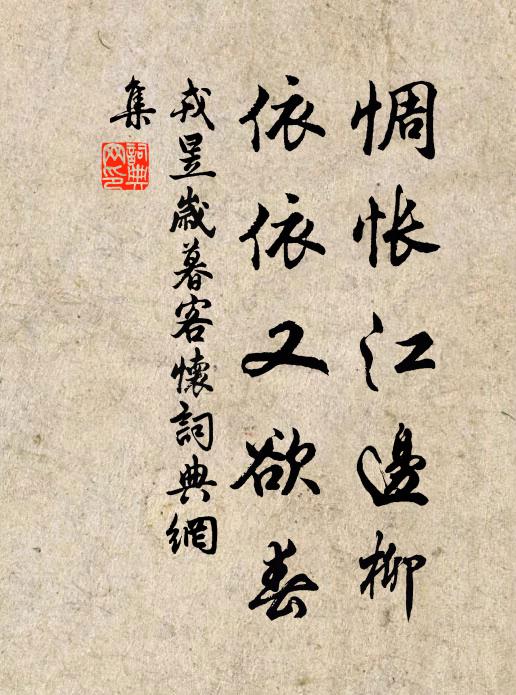 惆怅江邊柳
依依又欲春
戎昱歲暮客懷詞典網
集
詞典
网印